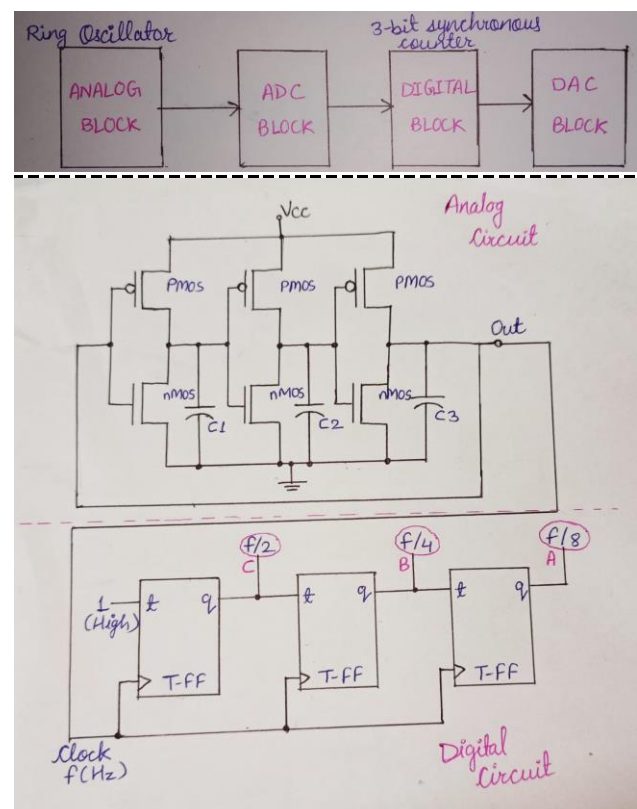 Ring Oscillator
3-bit synchronous
counter
ANALOG
BLOCK
ADC
BLOCK
DIGITAL
BLOCK
DAC
BLOCK
Vcc
Analog
Circuit
PMOS
PMOS
PMOS
Out
nMOS
nMOS
nMOS
C1
C2
C3
f/2
f/4
f/8
C
B
A
1
(High)
t
q
t
q
t
q
T-FF
T-FF
T-FF
Clock
f(Hz)
Digital
Circuit